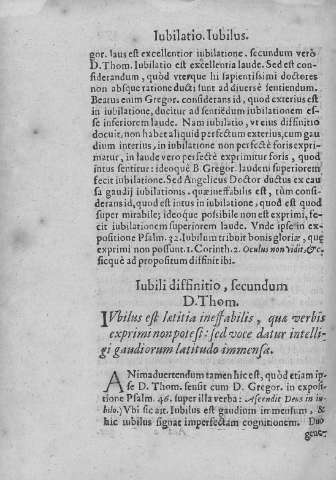 Iubilatio. Iubilus.
gor. laus est excellentior iubilatione. secundum verò
D. Thom. Iubilatio est excellentia laude. Sed est con-
siderandum, quòd vterque hi sapientissimi doctores
non absque ratione ducti sunt ad diuersè sentiendum.
Beatus enim Gregor. considerans id, quod exterius est
in iubilatione, ducitur ad sentiendum iubilationem es-
se inferiorem laude. Nam iubilatio, vt eius diffinitio
docuit, non habet aliquid perfectum exterius, cum gau
dium interius, in iubilatione non perfectè foris expri-
matur, in laude vero perfectè exprimitur foris, quod
intus sentitur: ideoquè B Gregor. laudem superiorem
fecit iubilatione. Sed Angelicus Doctor ductus ex cau
sa gaudij iubilationis. quæ ineffabilis est, tùm consi-
derans id, quod est intus in iubilatione, quod est quod
super mirabile; ideoque possibile non est exprimi, fe-
cit iubilationem superiorem laude. Vnde ipse in ex-
positione Psalm. 32. Iubilum tribuit bonis gloriæ, quę
exprimi non possunt. 1. Corinth. 2. Oculus non vidit, &c.
sicquè ad propositum diffinit ibi.
Iubili diffinitio, secundum
D. Thom.
IVbilus est lætitia ineffabilis, quæ verbis
exprimi non potest: sed voce datur intelli-
gi gaudiorum latitudo immensa.
ANimaduertendum tamen hic est, quòd etiam ip-
se D. Thom. sensit cum D. Gregor. in exposi-
tione Psalm. 46. super illa verba: Ascendit Deus in iu-
bilo.) Vbi sic ait. Iubilus est gaudium immensum, &
hic iubilus signat imperfectam cognitionem. Duo
genera